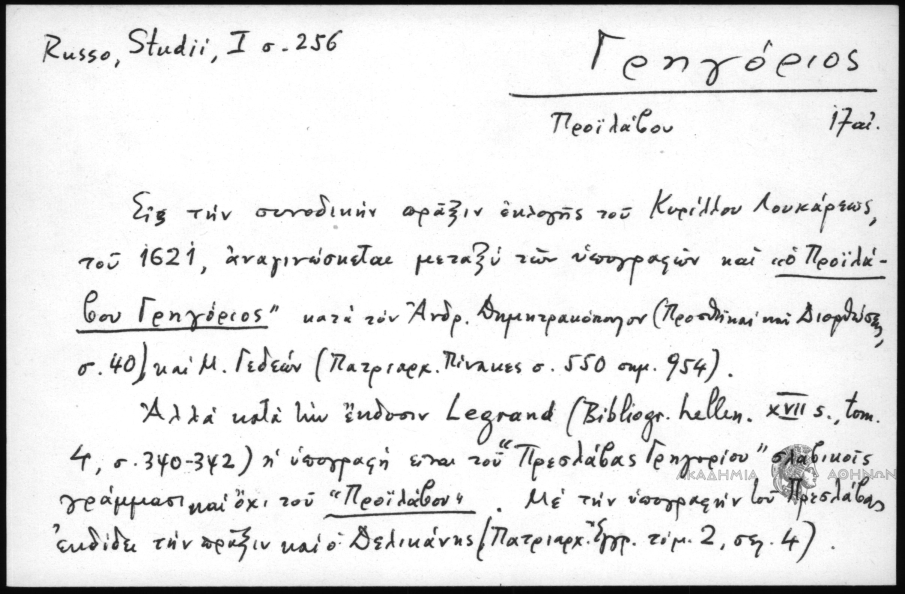 Russo, Studii, I σ. 256
Γρηγόριος
Προϊλάβου 17 αἰ.
Εἰς τὴν συνοδικὴν πρᾶξιν ἐκλογῆς τοῦ Κυρίλλου Λουκάρεως,
τοῦ 1621, ἀναγινώσκεται μεταξὺ τῶν ὑπογραφῶν καὶ «ὁ Προϊλά-
βου Γρηγόριος" κατὰ τὸν Ἀνδρ. Δημητρακόπουλον (Προσθῆκαι καὶ Διορθώσεις,
σ. 40) καὶ Μ. Γεδεών (Πατριαρχ. Πίνακες σ. 550 σημ. 954).
Ἀλλὰ κατὰ τὴν ἔκδοσιν Legrand (Bibliogr. hellen. XVII s., tom.
4, σ. 340-342) ἡ ὑπογραφὴ εἶναι τοῦ "Πρεσλάβας Γρηγορίου" σλαβικοῖς
γράμμασι καὶ ὄχι τοῦ "Προϊλάβου". Μὲ τὴν ὑπογραφὴν τοῦ Πρεσλάβας
ἐκδίδει τὴν πρᾶξιν καὶ ὁ Δελικάνης (Πατριαρχ. Ἔγγρ. τόμ. 2, σελ. 4).
ΑΚΑΔΗΜΙΑ ΑΘΗΝΩΝ